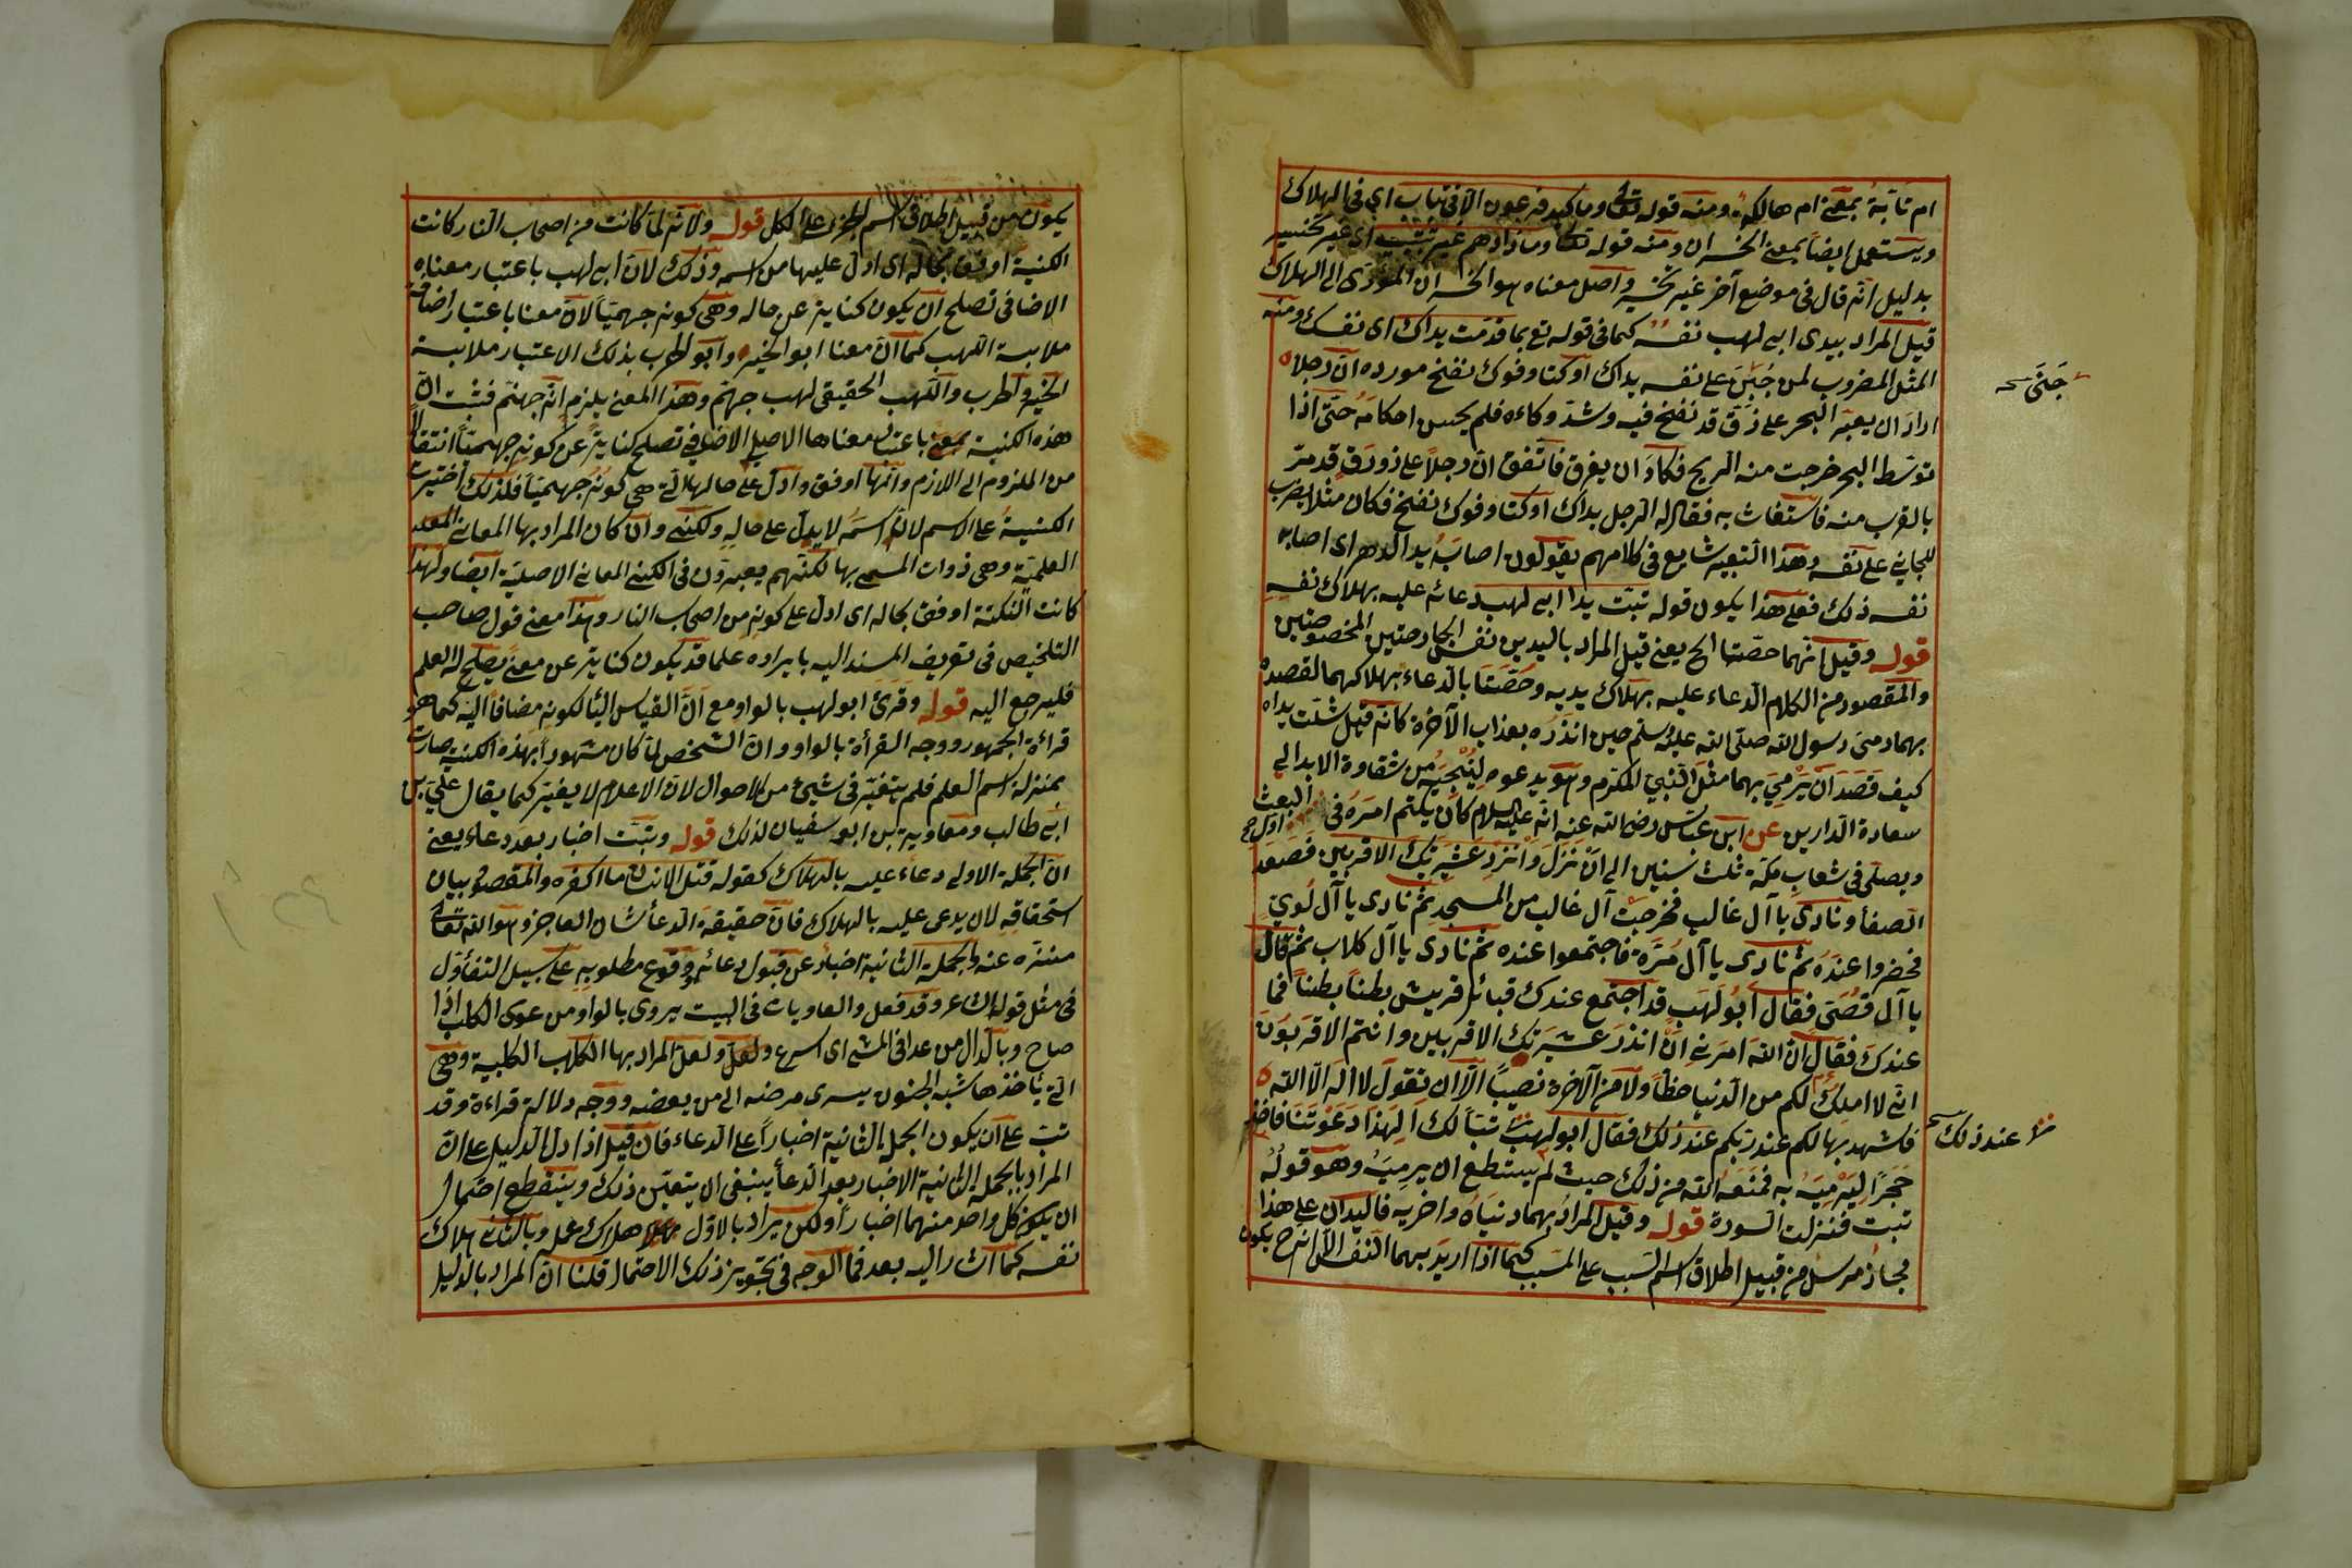 ام تابة بمعنى ام هالكة ومنه قوله تعالى وما كيد فرعون الا في تباب اي في الهلاك
ويستعمل ايضا بمعنى الخسران ومنه قوله تعالى وما زادهم غير تتبيب اى غير تخسير
بدليل انه قال فى موضع آخر غير تخسير واصل معناه هو الخسران المؤدى الى الهلاك
قيل المراد بيدى ابى لهب نفسه كما فى قوله تع بما قدمت يداك اى نفسك ومنه
المثل المضروب لمن جَنَى على نفسه يداك اوكتا وفوك نفخ مورده ان رجلا
اراد ان يعبر البحر على زق قد نفخ فيه وشد وكاءه فلم يحسن احكامه حتى اذا
توسط البحر خرجت منه الريح فكاد ان يغرق فاتفق ان رجلا على زورق قد مر
بالقرب منه فاستغاث به فقال له الرجل يداك اوكتا وفوك نفخ فكان مثلا يضرب
للجاني على نفسه وهذا التعبير شايع فى كلامهم يقولون اصابته يد الدهر اى اصابه
نفسه ذلك فعلى هذا يكون قوله تبت يدا ابى لهب دعاء عليه بهلاك نفسه
قوله وقيل انهما خصتا الخ يعنى قيل المراد باليدين نفس الجارحتين المخصوصتين
والمقصود من الكلام الدعاء عليه بهلاك يديه وخصتا بالدعاء بهلاكهما لقصده
بهما رمى رسول الله صلى الله عليه وسلم حين انذره بعذاب الآخرة كانه قيل شلت يداه
كيف قصد ان يرمى بهما مثل النبى المكرم وهو يدعوه لينجيه من شقاوة الابد الى
سعادة الدارين عن ابن عباس رضى الله عنه انه عليه السلام كان يكتم امره فى اول البعث
ويصلى فى شعاب مكة ثلث سنين الى ان نزل وانذر عشيرتك الاقربين فصعد
الصفا ونادى يا آل غالب فخرجت آل غالب من المسجد ثم نادى يا آل لوي
فحضروا عنده ثم نادى يا آل مرة فاجتمعوا عنده ثم نادى يا آل كلاب ثم قال
يا آل قصى فقال ابو لهب قد اجتمع عندك قبائل قريش بطنا بطنا فما
عندك فقال ان الله امرنى ان انذر عشيرتك الاقربين وانتم الاقربون
انى لا املك لكم من الدنيا حظا ولا من الآخرة نصيبا الا ان تقول لا اله الا الله
فاشهد بها لكم عند ربكم عند ذلك فقال ابو لهب تبا لك الهذا دعوتنا فاخذ
حجرا ليرميه به فمنعه الله من ذلك حيث لم يستطع ان يرميه وهو قوله
تبت فنزلت السورة قوله وقيل المراد بهما دنياه واخريه فاليدان على هذا
مجاز مرسل من قبيل اطلاق اسم السبب على المسبب كما اذا اريد بهما النفس الا انه ح يكون
جَنَى صح
عند ذلك
يكون من قبيل اطلاق اسم الجزء على الكل قوله ولانه لما كانت من اصحاب النار كانت
الكنية اوفق بحاله اى ادل عليها من اسمه وذلك لان ابى لهب باعتبار معناه
الاضافى تصلح ان يكون كناية عن حاله وهى كونه جهنميا لان معنا باعتبار اضافة
ملابسة اللهب كما ان معنا ابو الخير وابو الحرب بذلك الاعتبار ملابسة
الخير والحرب واللهب الحقيقى لهب جهنم وهذا المعنى يلزم انه جهنم فثبت ان
هذه الكنية باعتبار معناها الاصلى الاضافى تصلح كناية عن كونه جهنميا انتقالا
من الملزوم الى اللازم وانها اوفق وادل على حالها التى هى كونه جهنميا فلذلك اختيرت
الكنية على الاسم لان اسمه لا يدل على حاله ولكنى وان كان المراد بها المعانى
العلمية وهى ذوات المسمى بها لكنهم يعبرون فى الكنى المعانى الاصلية ايضا ولهذا
كانت النكتة اوفق بحاله اى ادل على كونه من اصحاب النار وهذا معنى قول صاحب
التلخيص فى تعريف المسند اليه بايراده علما قد يكون كناية عن معنى يصلح له العلم
فليرجع اليه قوله وقرئ ابو لهب بالواو مع ان القياس اليا لكونه مضافا اليه كما هو
قراءة الجمهور ووجه القرأة بالواو وان الشخص لما كان مشهورا بهذه الكنية صارت
بمنزلة اسم العلم فلم يتغير فى شيئ من الاحوال لان الاعلام لا يغير كما يقال علي بن
ابى طالب ومعاوية بن ابو سفيان لذلك قوله وتبت اخبار بعد دعاء يعنى
ان الجملة الاولى دعاء عليه بالهلاك كقوله قتل الانسان ما اكفره والمقصود بيان
استحقاقه لان يدعى عليه بالهلاك فان حقيقة الدعأ شان العاجز وهو الله تعالى
منزه عنه والجملة الثانية اخبار عن قبول دعائه ووقوع مطلوبه على سبيل التفأول
فى مثل قوله الشاعر وقد فعل والعاويات فى البيت يروى بالواو من عوى الكلب اذا
صاح وبالدال من عدا فى المشى اى اسرع ولعل المراد بها الكلاب الكلبية وهى
التى يأخذها شبه الجنون يسرى مرضه الى من يعضه ووجه دلالة قراءة وقد
تب على ان يكون الجملة الثانية اخبارا على الدعاء فان قيل اذا دل الدليل على ان
المراد بالجملة الثانية الاخبار بعد الدعأ ينبغى ان يتعين ذلك وينقطع احتمال
ان يكون كل واحد منهما اخبارا ولكن يراد بالاول هلاك عمله وبالثانى هلاك
نفسه كما اشار اليه بعد فما الوجه فى تجويز ذلك الاحتمال قلنا ان المراد بالدليل